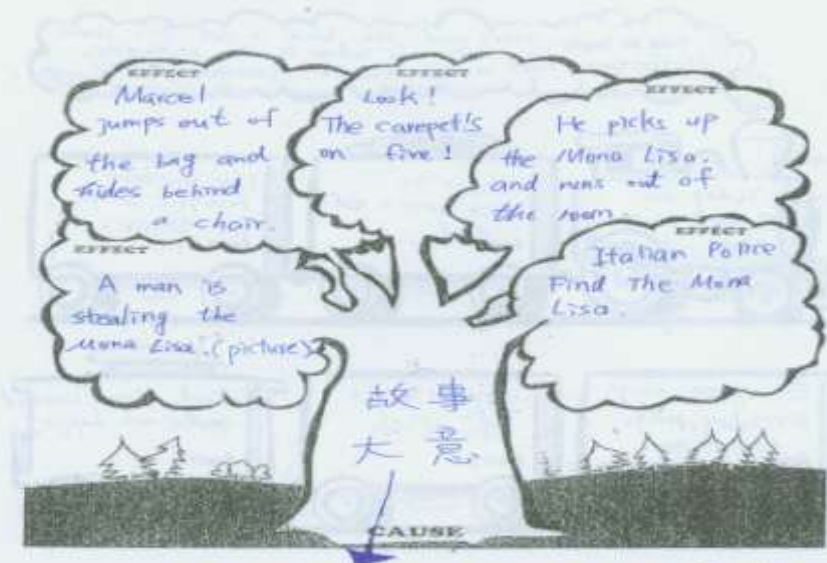 EFFECT
Marcel
jumps out of
the bag and
hides behind
a chair.
EFFECT
Look!
The carepet's
on five!
EFFECT
He picks up
the Mona Lisa.
and runs out of
the room.
EFFECT
A man is
stealing the
Mona Lisa. (picture)
EFFECT
Italian Police
Find The Mona
Lisa.
故事
大意
CAUSE